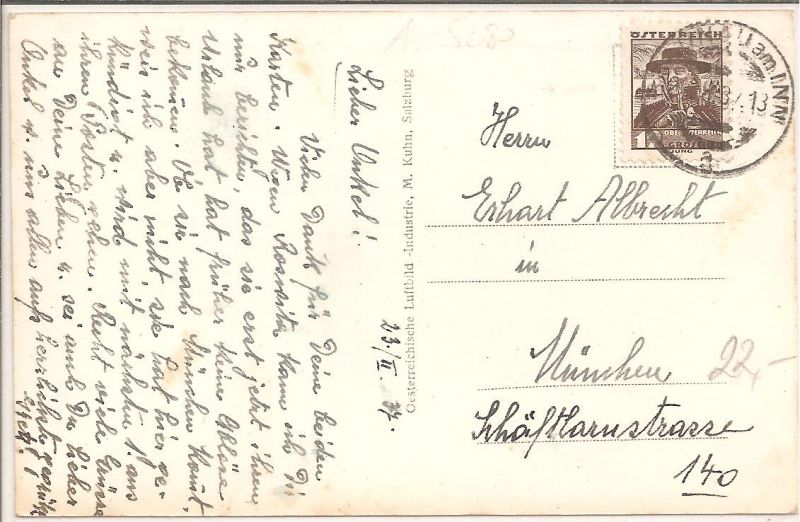 Lieber Onkel!
Vielen Dank für Deine beiden
Karten. Wegen Roswita kann ich Dir
nur berichten, das sie erst jetzt ihren
Urlaub hat hat früher keine Ablöse
bekommen. Ob sie nach München kommt,
weis ich aber nicht, sie hat hier ge-
kündigt u. wird mit nächsten 1. aus
ihren Posten gehen. Recht viele Grüsse
an Deine Lieben u. sei auch Du lieber
Onkel v. uns allen aufs herzlichst gegrüßt
23/II 37.
Oesterreichische Luftbild-Industrie, M. Kuhn, Salzburg
A 5280
ÖSTERREICH
OBERÖSTERREICH
GROSCHEN
JUNG
AU am INN
37.13
a
Herrn
Erhart Albrecht
in
München
Schäftlarnstrasse
140
22,-